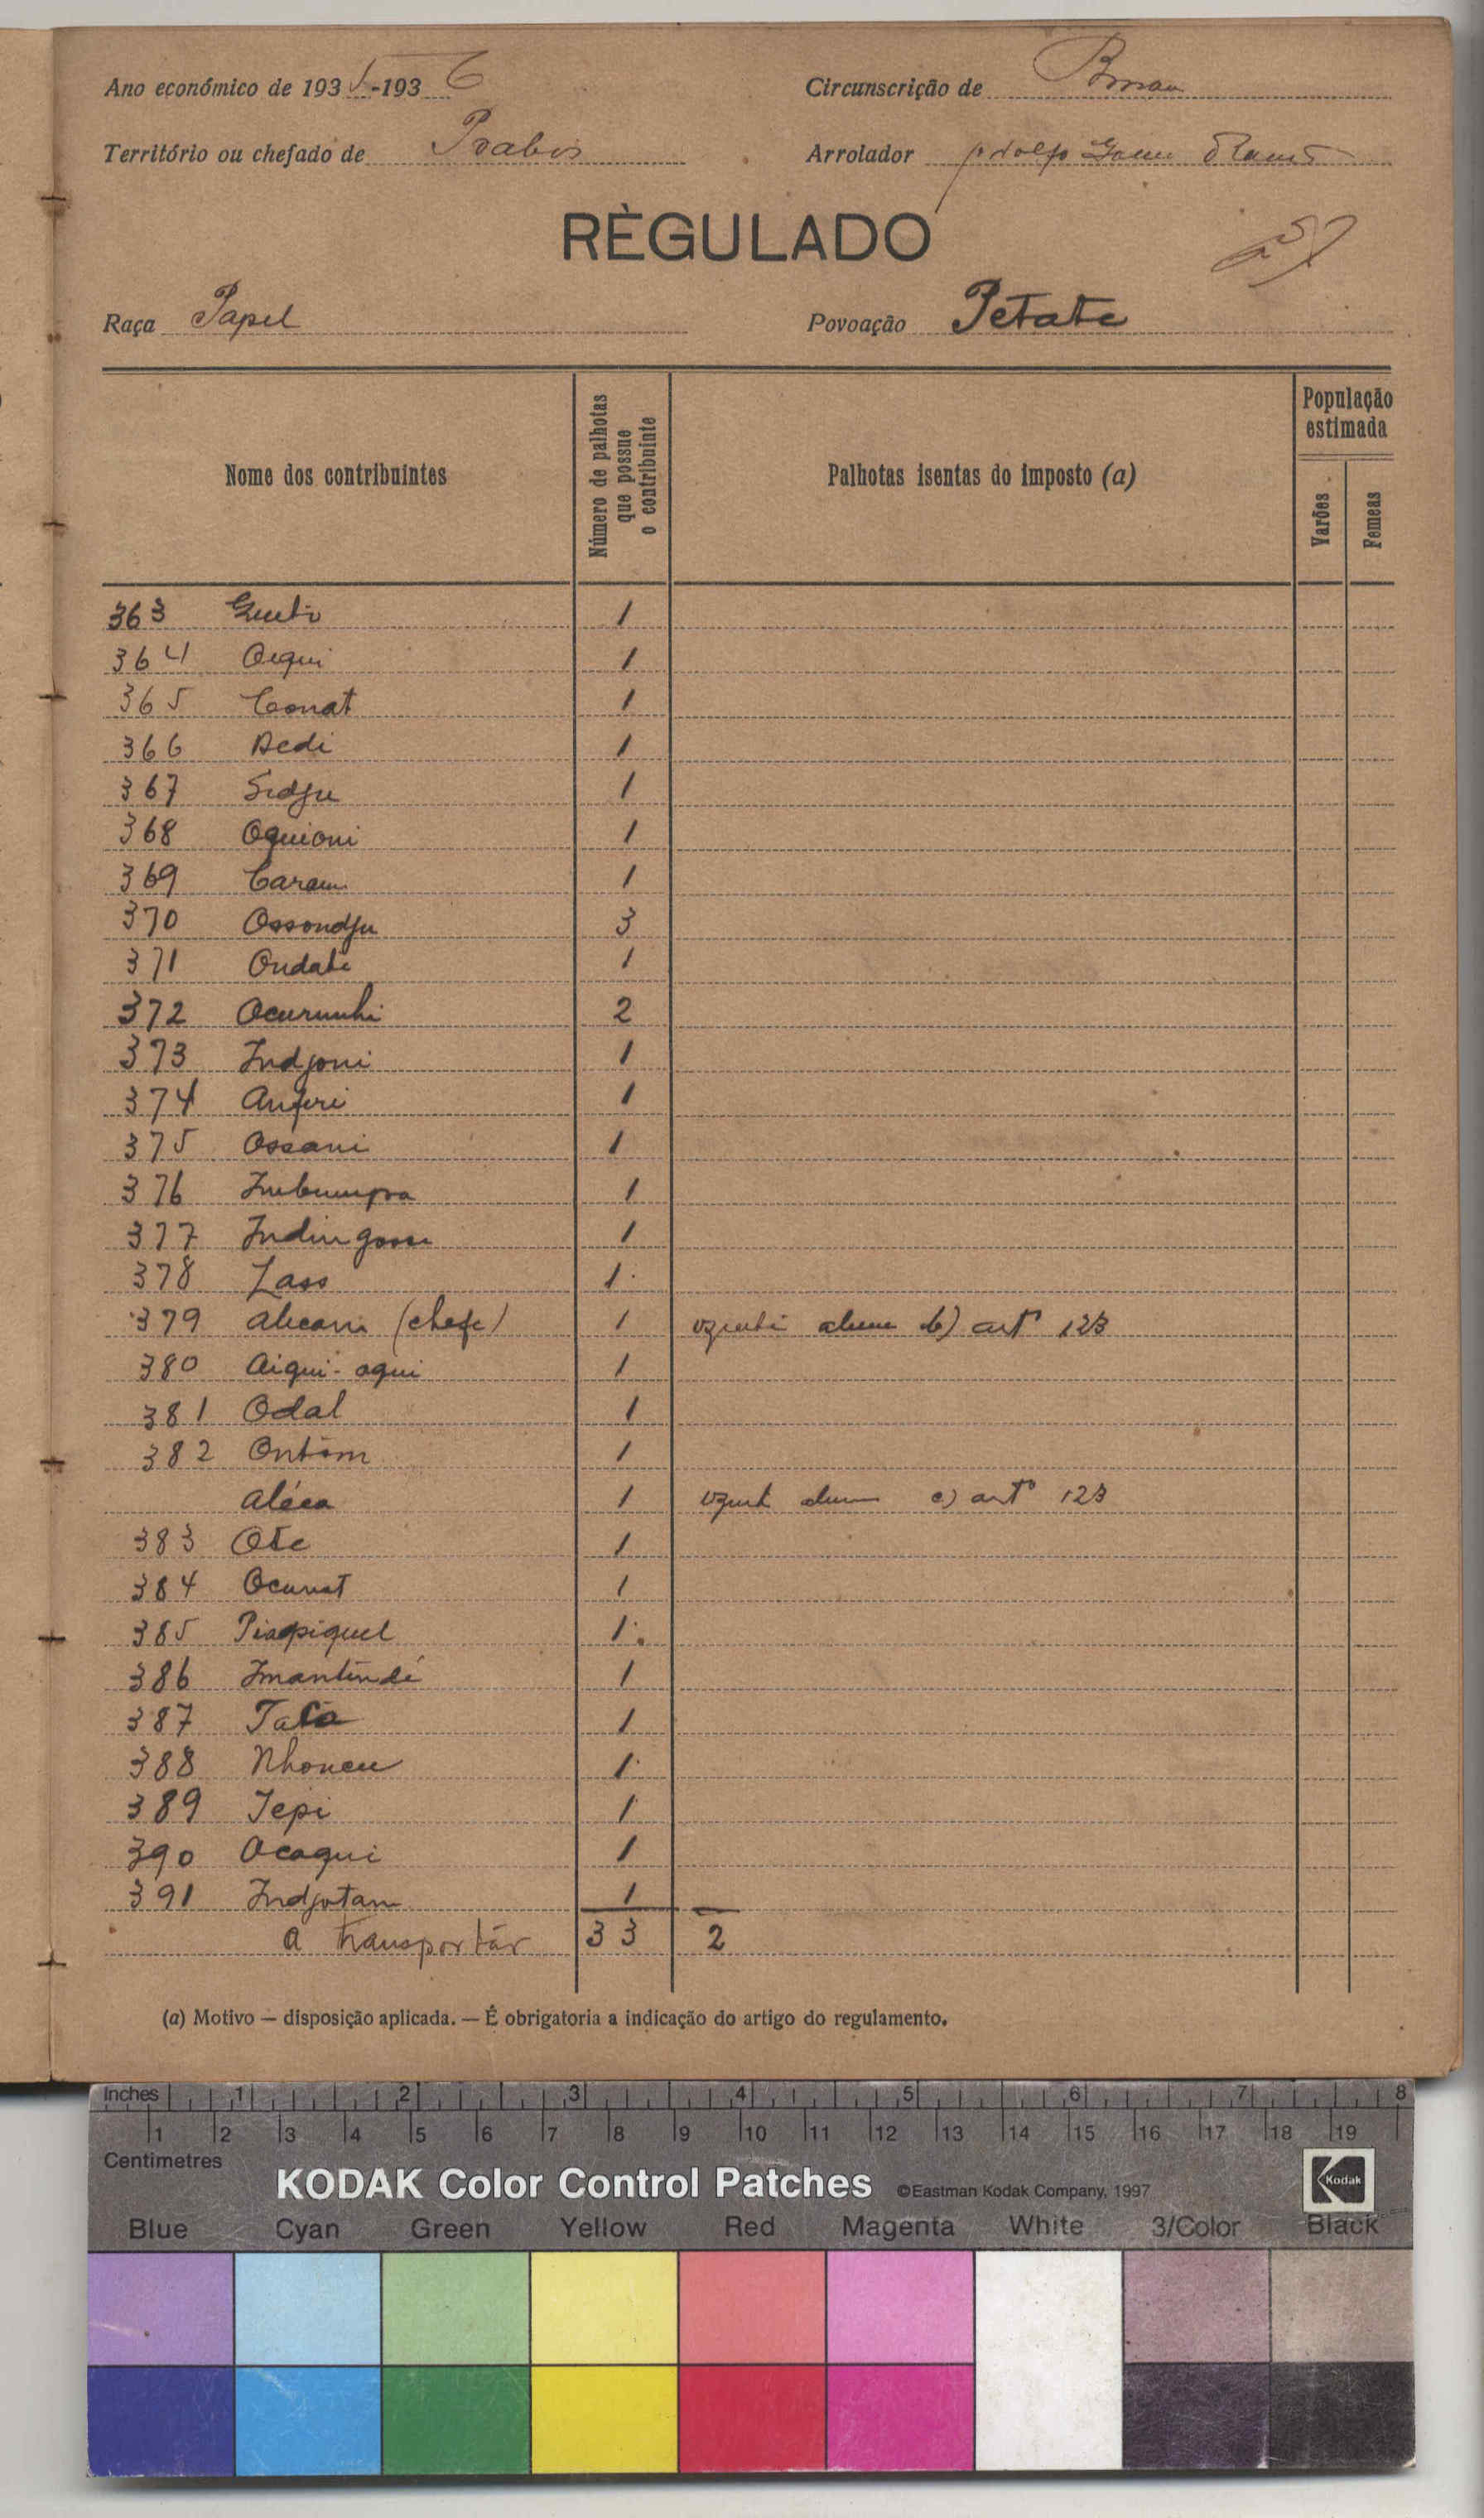 Ano económico de 1935-1936 Circunscrição de Bissau
Território ou chefado de Prabis Arrolador
RÈGULADO
Raça Papel Povoação Petate
Nome dos contribuintes Número de palhotas que possue o contribuinte Palhotas isentas do imposto (a) População estimada Varões Femeas
363 1
364 1
365 Conat 1
366 Dedi 1
367 Sidju 1
368 Oquioni 1
369 1
370 Ossondju 3
371 Ondate 1
372 Ocurunhi 2
373 Indjoni 1
374 1
375 Ossani 1
376 1
377 1
378 Lass 1
379 (chefe) 1 b) artº 123
380 Aiqui-oqui 1
381 Odal 1
382 Ontom 1
Aléca 1 c) artº 123
383 Ote 1
384 Ocunat 1
385 1
386 Imantindé 1
387 1
388 Nhoncu 1
389 Tepi 1
390 Ocaqui 1
391 Indjotam 1
A transportár 33 2
(a) Motivo — disposição aplicada. — É obrigatoria a indicação do artigo do regulamento.
Inches 1 2 3 4 5 6 7 8
1 2 3 4 5 6 7 8 9 10 11 12 13 14 15 16 17 18 19
Centimetres
KODAK Color Control Patches ©Eastman Kodak Company, 1997 Kodak
Blue Cyan Green Yellow Red Magenta White 3/Color Black